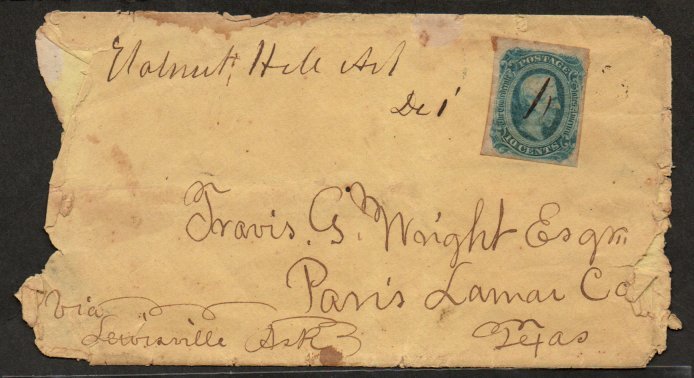 Walnut Hill Ark
De 1
POSTAGE
THE CONFEDERATE STATES OF AMERICA
10 CENTS
Travis. G. Wright Esqr
Paris Lamar Co
Texas
Via
Lewisville Ark